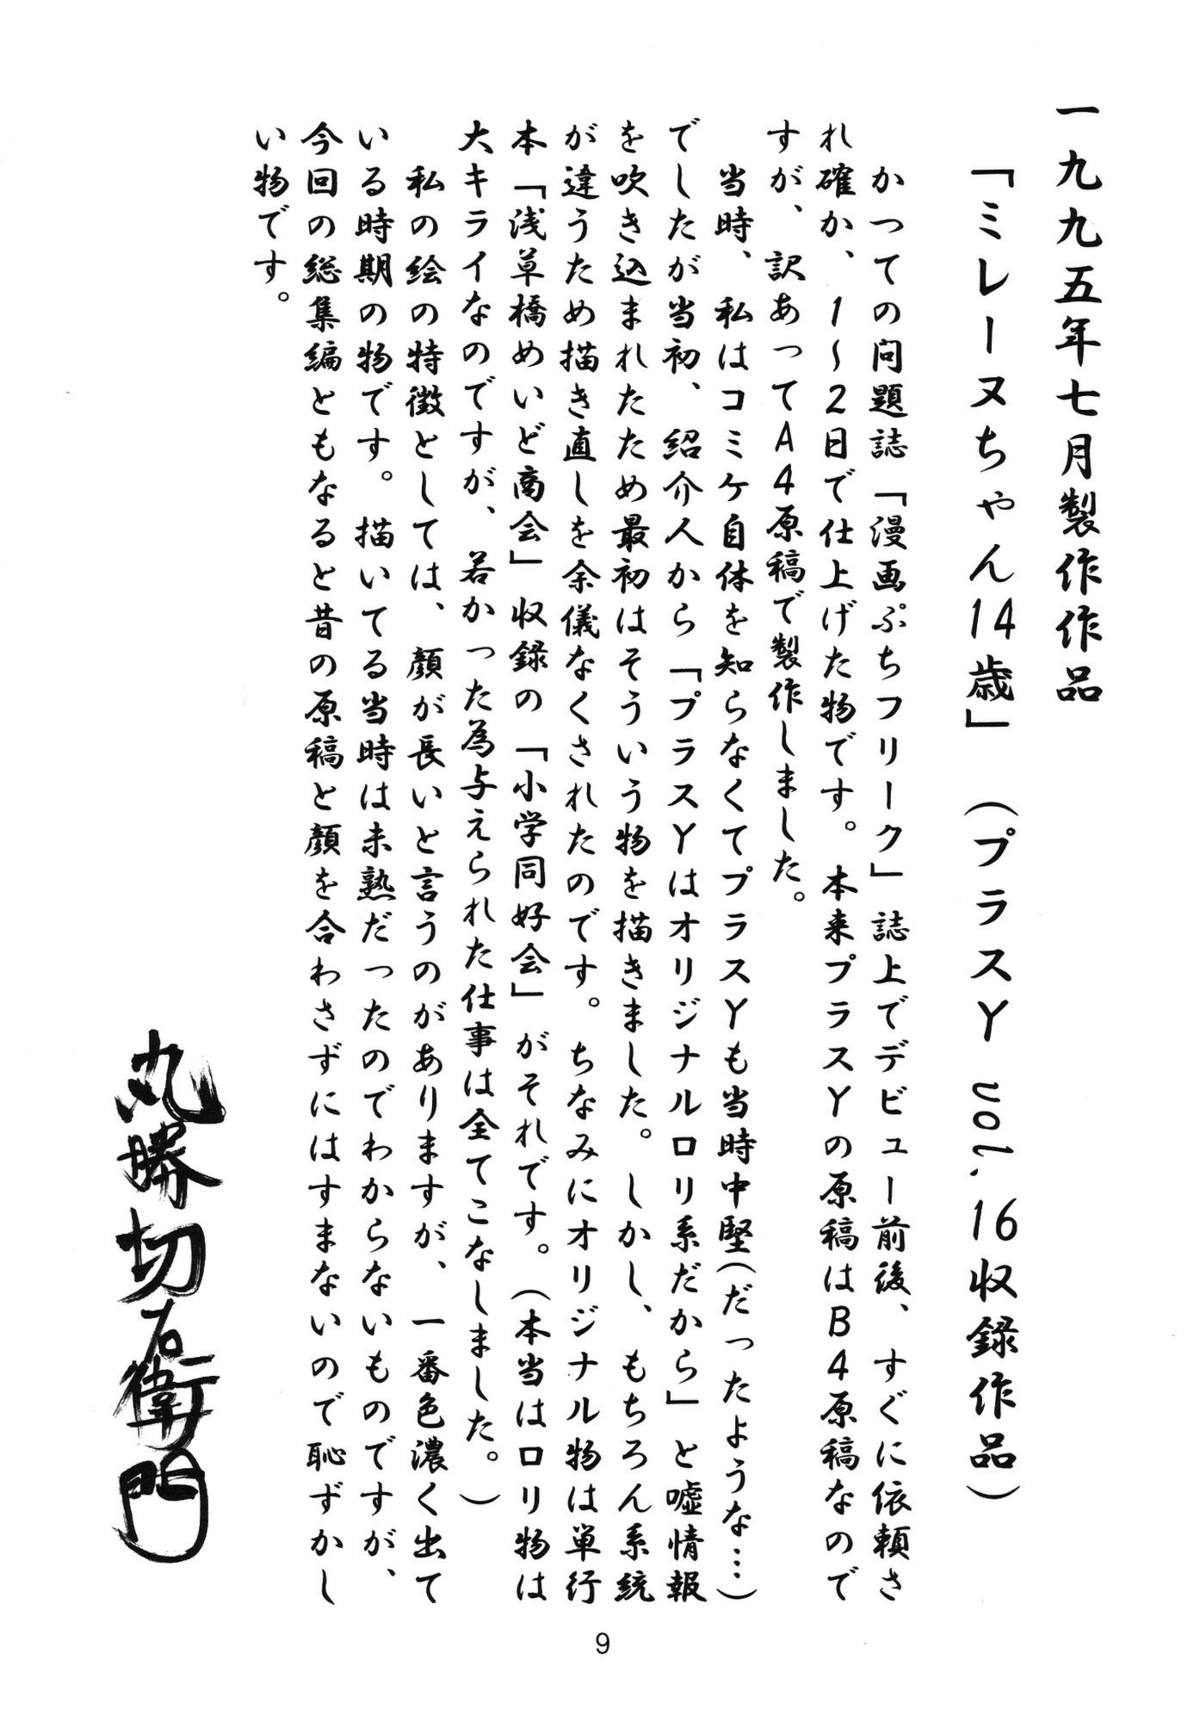 一九九五年七月製作作品
「ミレーヌちゃん14歳」（プラスY vol.16収録作品）
かつての問題誌「漫画ぷちフリーク」誌上でデビュー前後、すぐに依頼さ
れ確か、1～2日で仕上げた物です。本来プラスYの原稿はB4原稿なので
すが、訳あってA4原稿で製作しました。
当時、私はコミケ自体を知らなくてプラスYも当時中堅（だったような…）
でしたが当初、紹介人から「プラスYはオリジナルロリ系だから」と嘘情報
を吹き込まれたため最初はそういう物を描きました。しかし、もちろん系統
が違うため描き直しを余儀なくされたのです。ちなみにオリジナル物は単行
本「浅草橋めいど商会」収録の「小学同好会」がそれです。（本当はロリ物は
大キライなのですが、若かった為与えられた仕事は全てこなしました。）
私の絵の特徴としては、顔が長いと言うのがありますが、一番色濃く出て
いる時期の物です。描いてる当時は未熟だったのでわからないものですが、
今回の総集編ともなると昔の原稿と顔を合わさずにはすまないので恥ずかし
い物です。
丸勝切右衛門
9